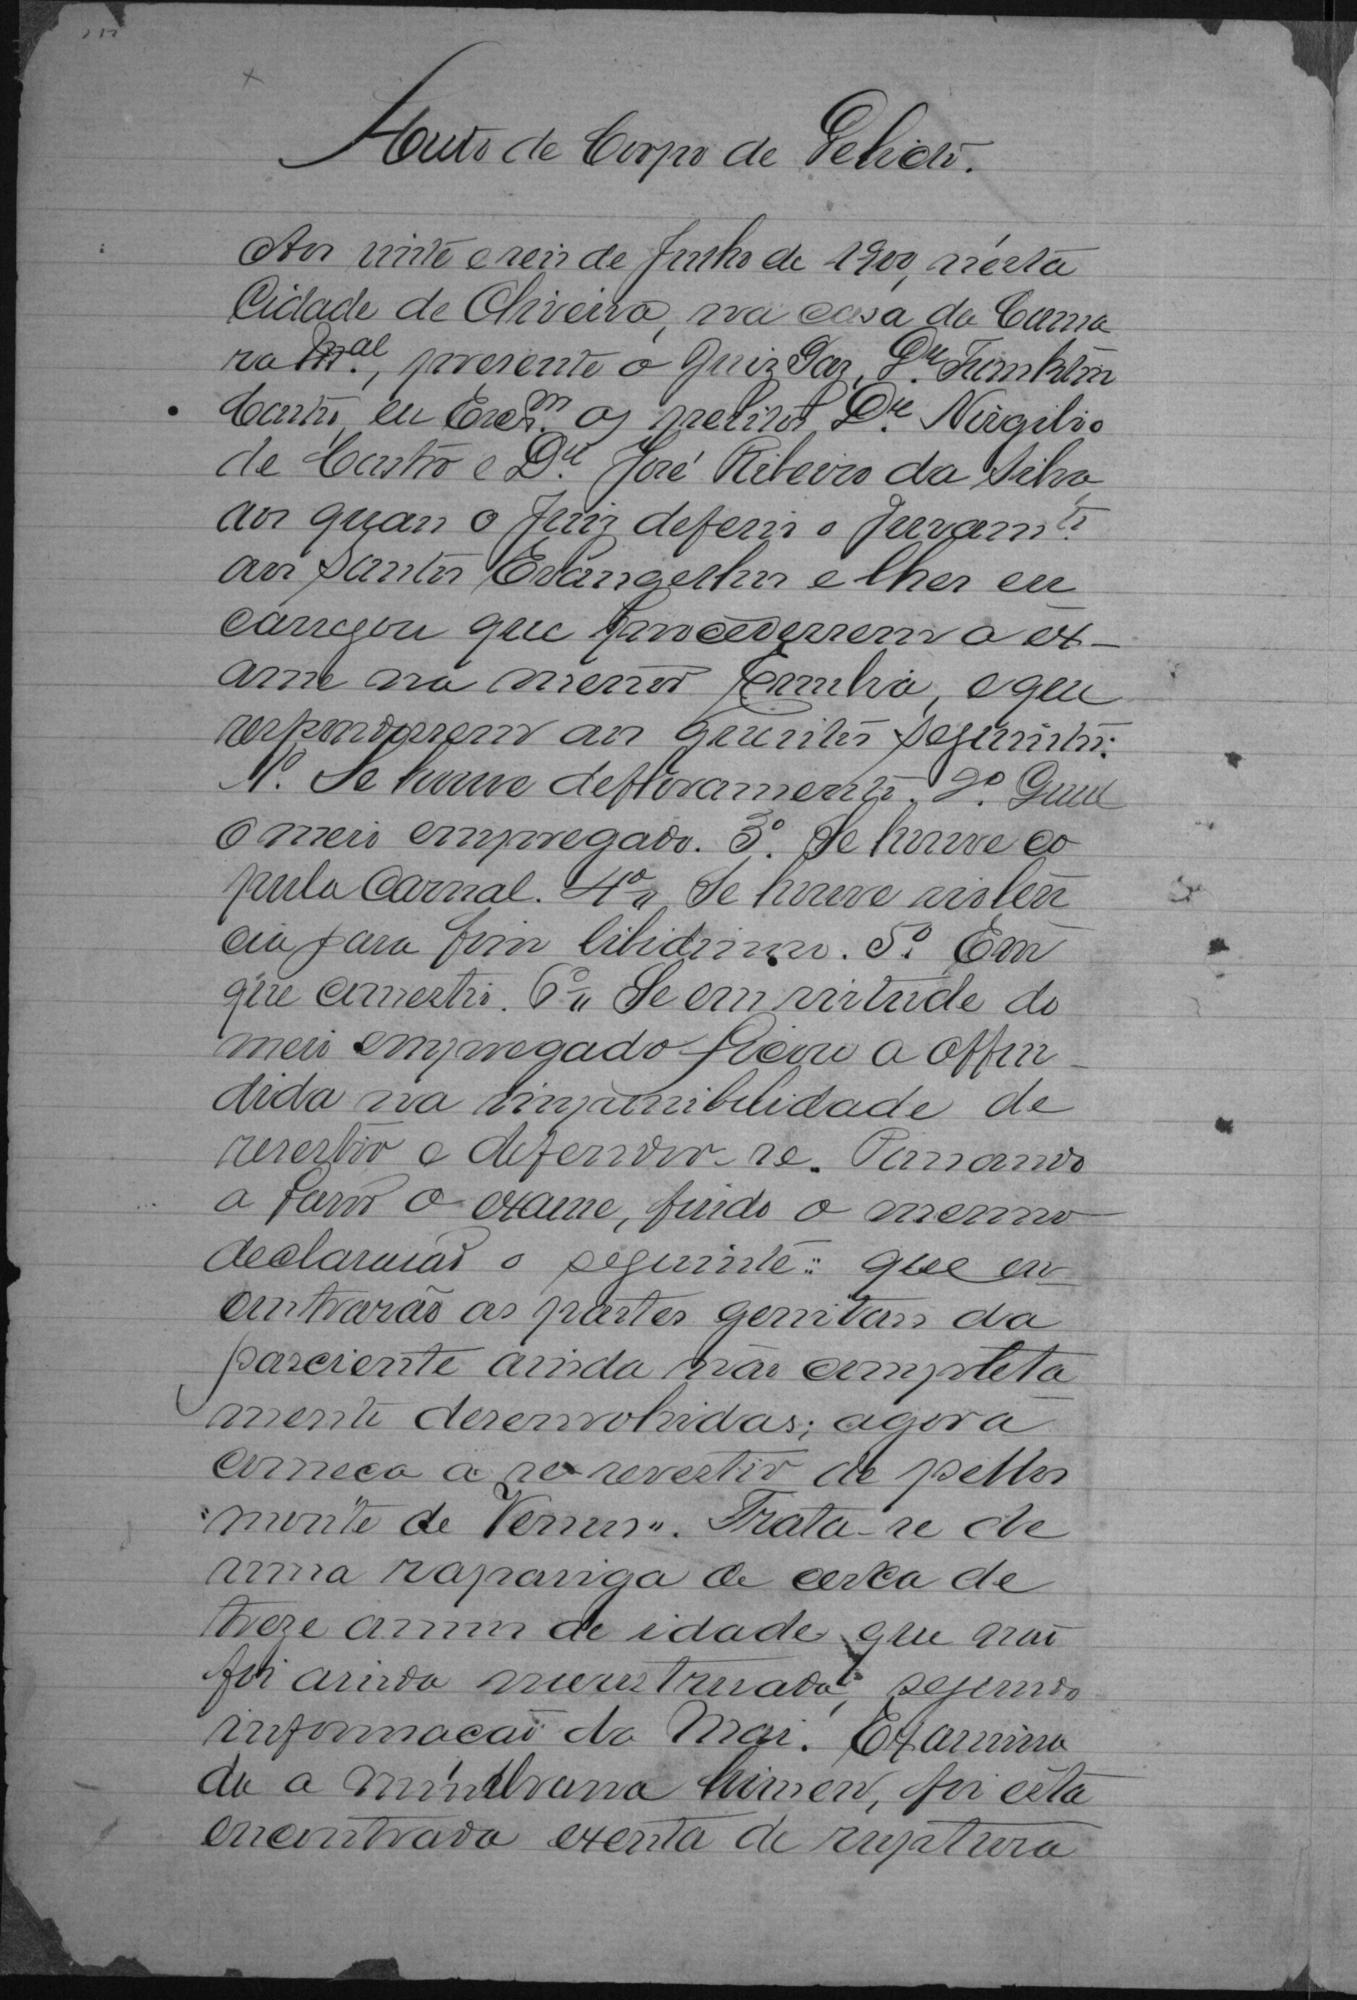 Auto de Corpo de Delicto.
Aos vinte e seis de Junho de 1900, n'esta
Cidade de Oliveira, na casa da Cama
ra Mal., presente o Juiz Paz, Dr.
Castro, eu Escm. os peritos Dr. Virgilio
de Castro e Dr. José Ribeiro da Silva,
aos quaes o Juiz deferio o Juramto.
aos Santos Evangelhos e lhes en
carregou que procedessem a ex-
ame na menor Emilia, e que
respondessem aos quesitos seguintes:
1º. Se houve defloramento. 2º. Qual
o meio empregado. 3º. Se houve co
pula carnal. 4º" Se houve violen
cia para fim libidinoso. 5º. Em
que consestio. 6º" Se em virtude do
meio empregado ficou a offen-
dida na impossibilidade de
resestir e defender-se. Passando
a fazer o exame, findo o mesmo
declararão o seguinte: que en-
contrarão as partes genitaes da
pasciente ainda não completa
mente desenvolvidas; agora
comeca a se revestir de pellos
"monte de Venus". Trata-se de
uma rapariga de cerca de
treze annos de idade que não
foi ainda menstruada, segundo
informacaõ da Mai. Examina
da a membrana himen, foi esta
encontrada exenta de ruptura